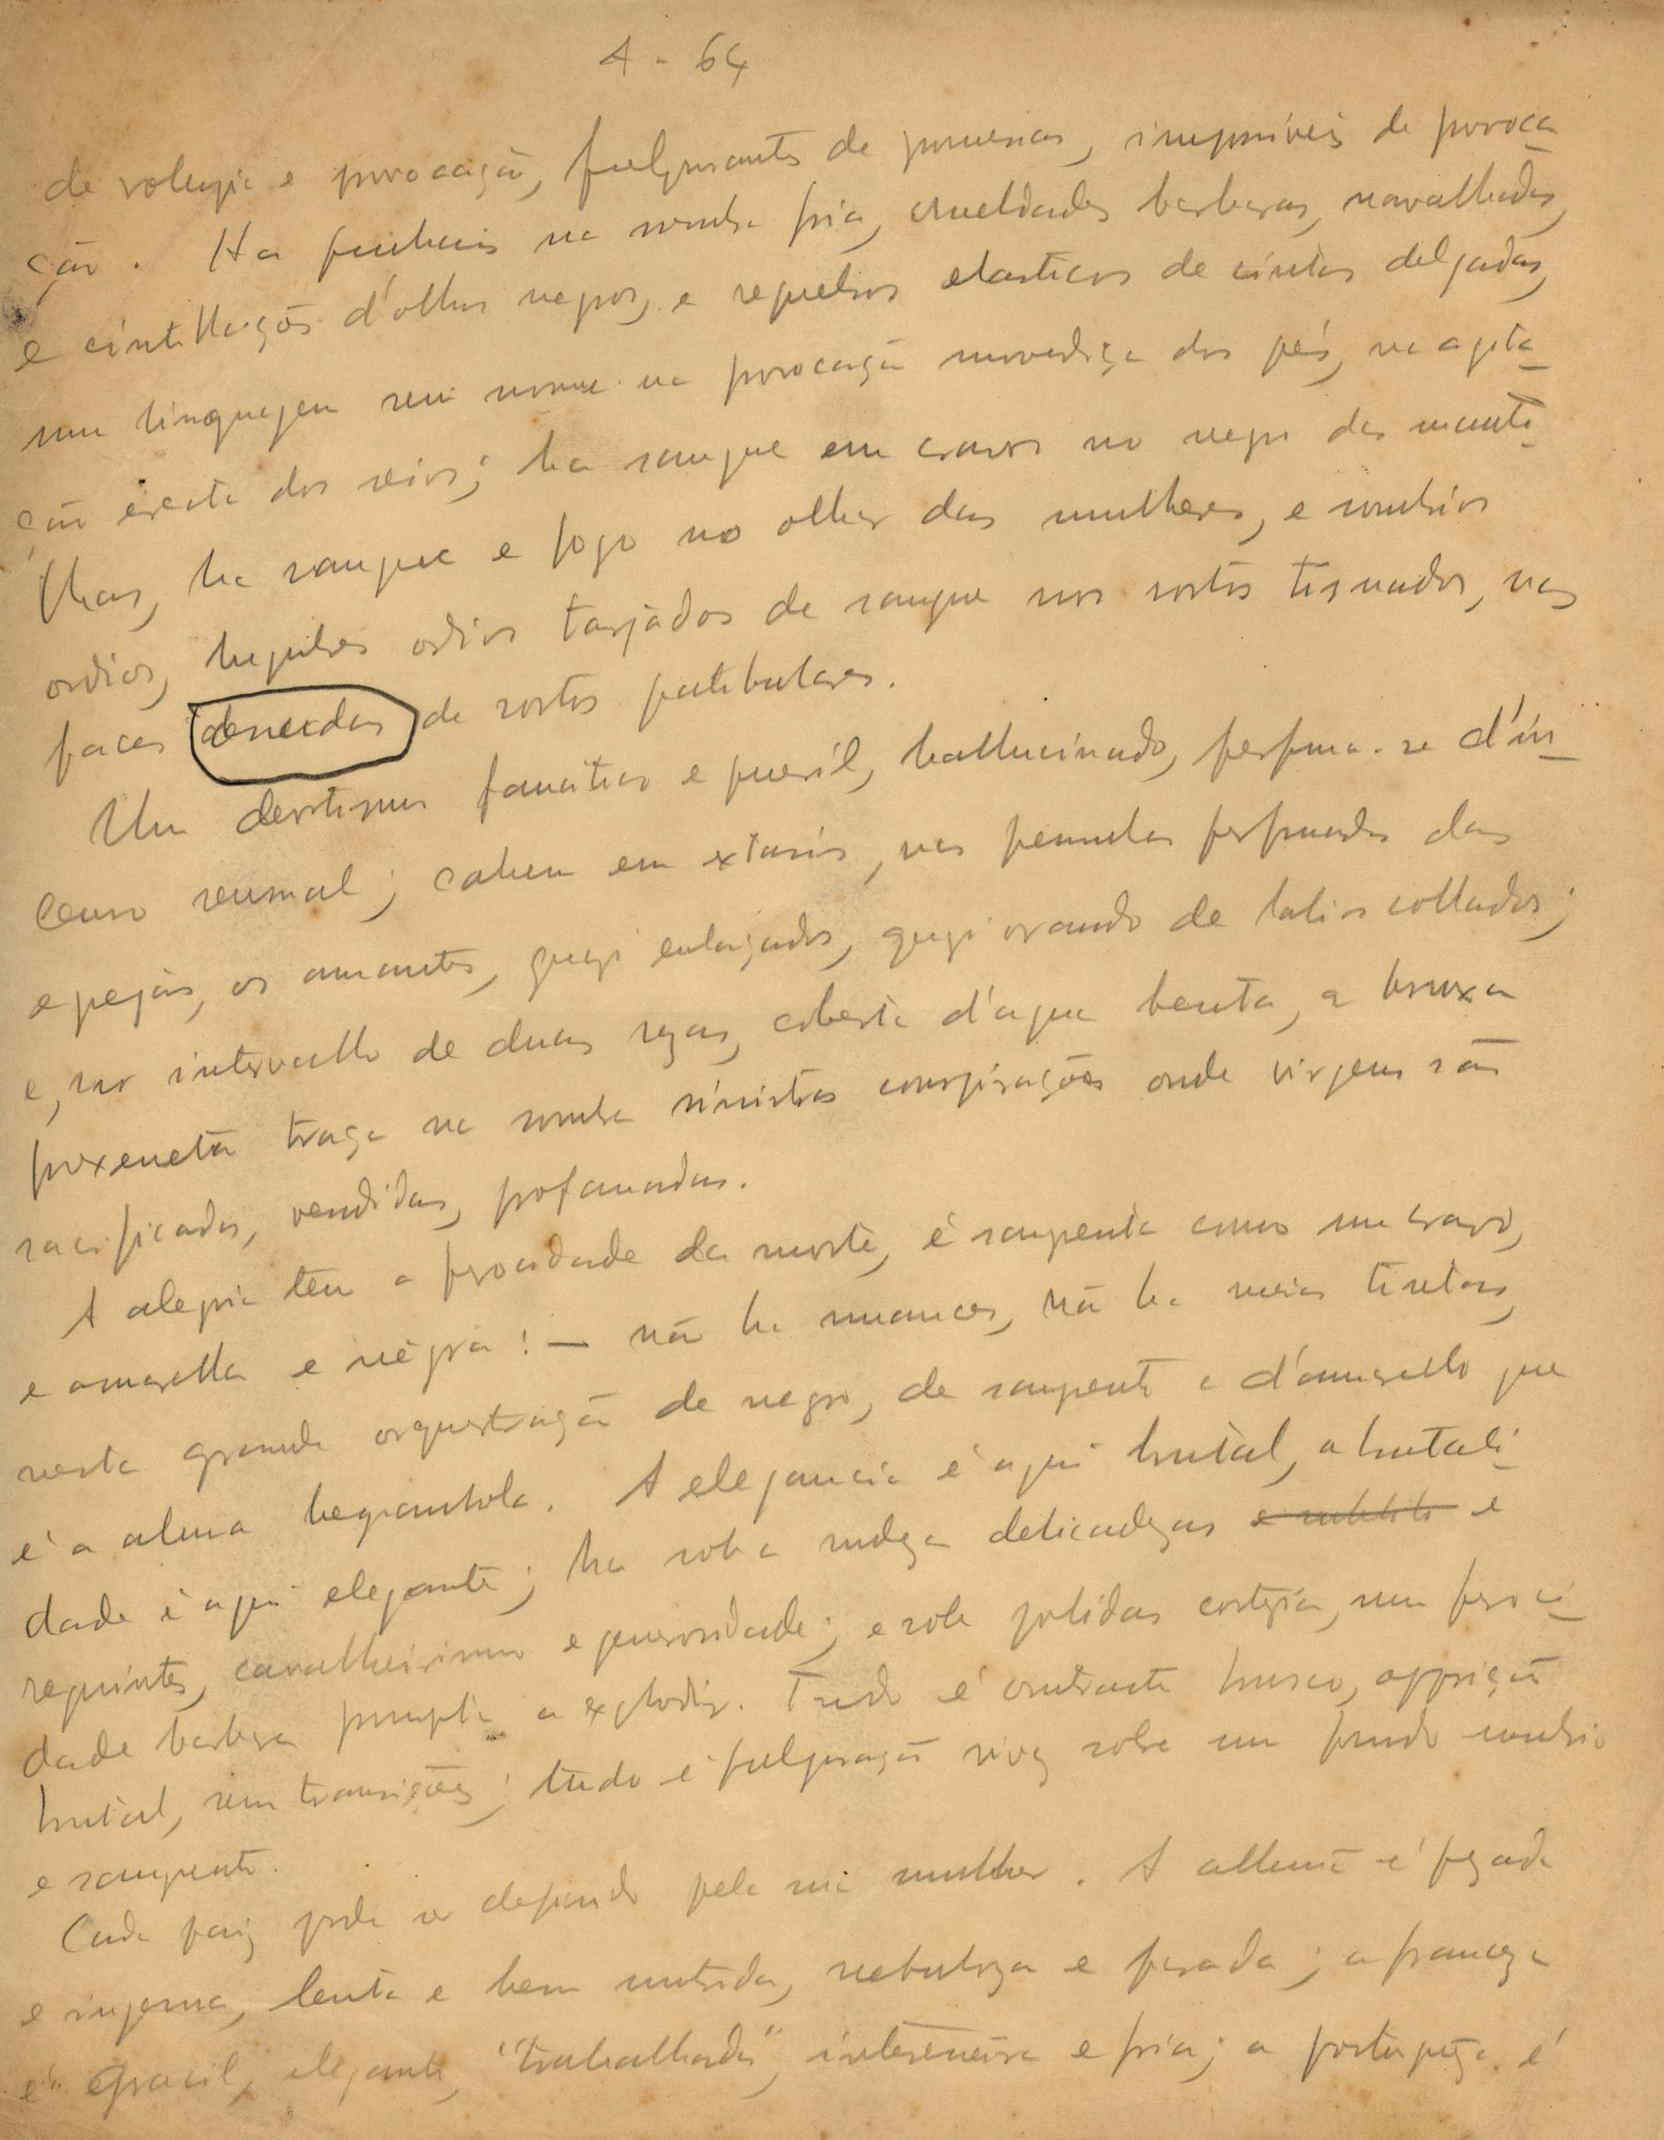 A - 64
de volupia e provocação, fulgurantes de promessas, impossiveis de provoca-
ção. Ha punhais na sombra fria, crueldades barbaras, navalhadas,
e cintillações d'olhos negros, e requebros elasticos de cintas delgadas,
um linguagem sem nome na provocação movediça dos pés, na agita-
ção erecta dos seios; ha sangue em cravos no negro das manti-
lhas, ha sangue e fogo no olhar das mulheres, e sombrios
odios, lugubres odios tarjados de sangue nos rostos tisnados, nas
faces de rostos patibulares.
Um devotismo fanatico e pueril, hallucinado, perfuma-se d'in-
censo sensual; cahem em extasis, nas penumbras perfumadas das
egrejas, os amantes, quasi enlaçados, quasi orando de labios collados;
e, no intervallo de duas rezas, coberta d'agua benta, a bruxa
proxeneta traça na sombra sinistras conspirações onde virgens são
sacrificadas, vendidas, profanadas.
A alegria tem a ferocidade da morte, é sangrenta como um cravo,
e amarella e négra! — não ha nuances, não ha meias tintas,
nesta grande orquestração de negro, de sangrento e d'amarello que
é a alma hespanhola. A elegancia é aqui brutal, a brutali-
dade é aqui elegante; ha sob a rudeza delicadezas e
requintes, cavalheirismo e generosidade; e sob polidas cortezia, um feroci-
dade barbara prompta a explodir. Tudo é contraste brusco, opposição
brutal, sem transições; tudo é fulguração viva sobre um fundo sombrio
e sangrento.
Cada paiz pode ser definido pela sua mulher. A allemã é pezada
e ingenua, lenta e bem nutrida, nebulosa e pesada; a franceza
é gracil, elegante, "trabalhada", interesseira e fria; a portugueza é